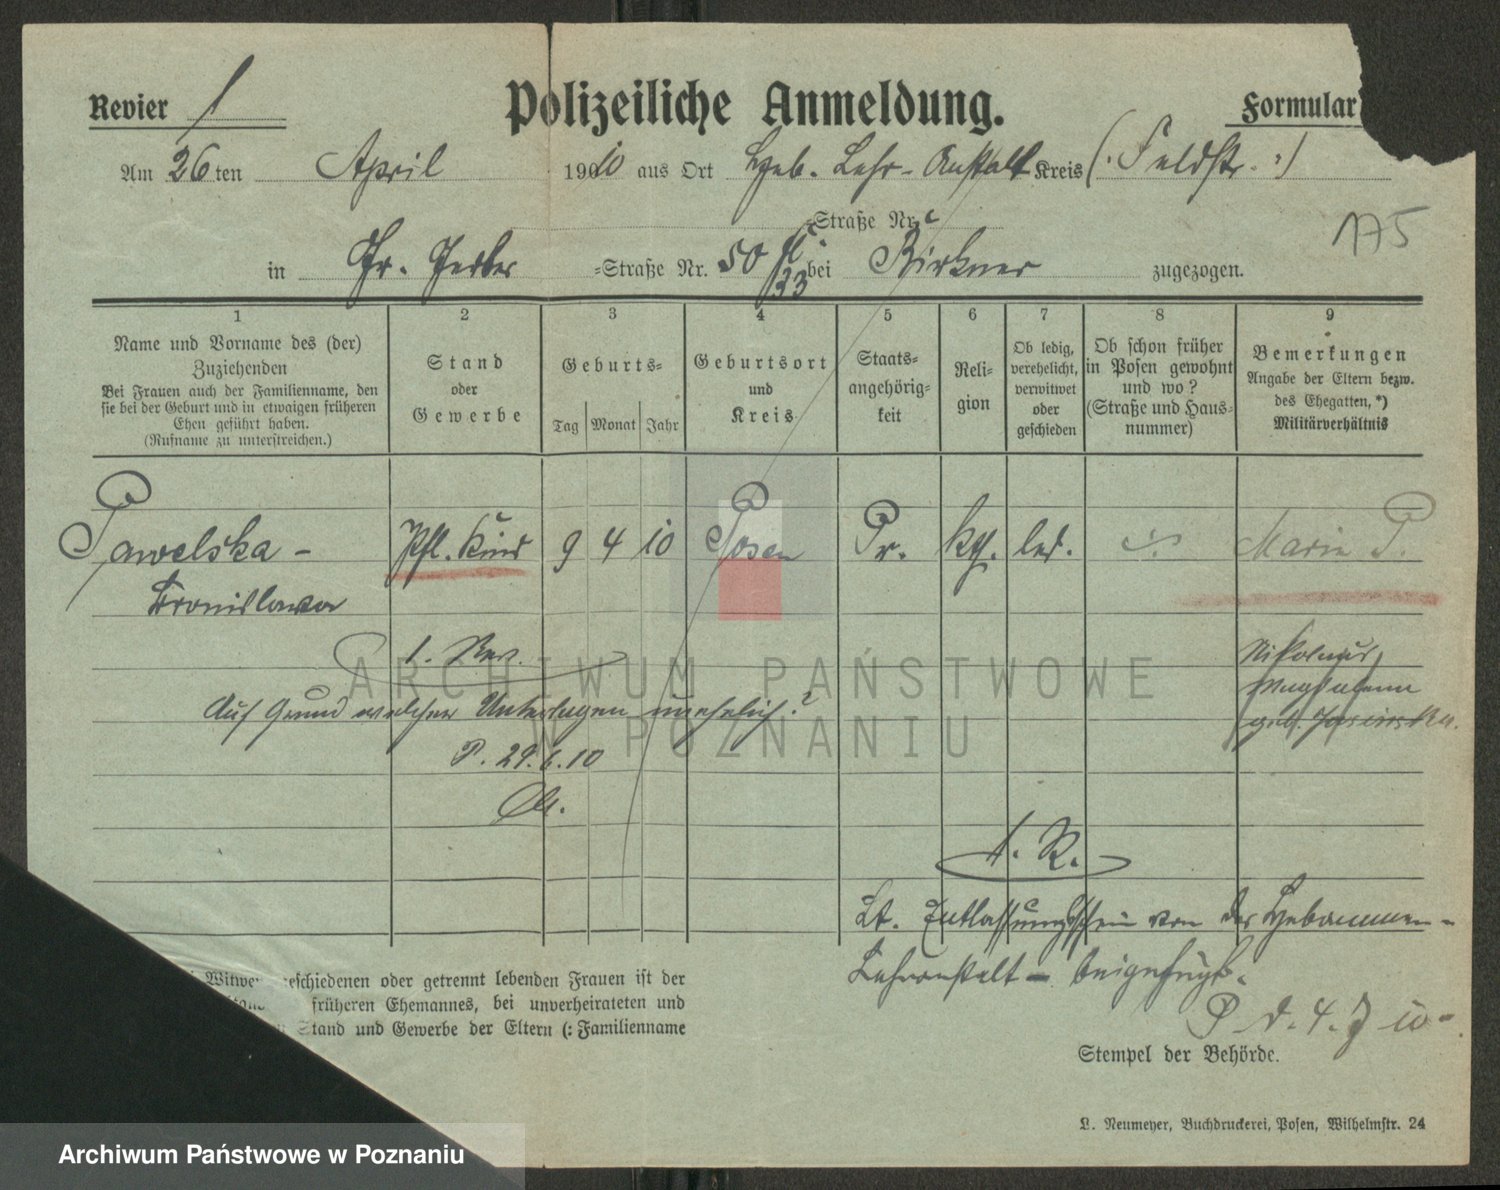 Revier 1
Polizeiliche Anmeldung.
Formular
Am 26ten April 1910 aus Ort Heb.-Lehr-Anstalt Kreis (: Feldstr. :)
-Straße Nr.
175
in Gr. Gerber -Straße Nr. 50 bei Birkner zugezogen.
33
1 2 3 4 5 6 7 8 9
Name und Vorname des (der) Zuziehenden
Bei Frauen auch der Familienname, den
sie bei der Geburt und in etwaigen früheren
Ehen geführt haben.
(Rufname zu unterstreichen.)
Stand
oder
Gewerbe
Geburts-
Tag Monat Jahr
Geburtsort
und
Kreis
Staats-
angehörig-
keit
Reli-
gion
Ob ledig,
verehelicht,
verwitwet
oder
geschieden
Ob schon früher
in Posen gewohnt
und wo?
(Straße und Haus-
nummer)
Bemerkungen
Angabe der Eltern bezw.
des Ehegatten,*)
Militärverhältnis
Pawelska - Pfl. Kind 9 4 10 Posen Pr. kth. led. Marie P.
Bronislawa
1. Rev.
Auf Grund welcher Unterlagen unehelich?
P. 29.6.10
Nikolaus
Magdalena
geb. Jasinska.
1. R.
Lt. Entlassungsschein von der Hebammen-
Lehranstalt - beigefügt.
P d. 4. 7 10
Witwe geschiedenen oder getrennt lebenden Frauen ist der
früheren Ehemannes, bei unverheirateten und
Stand und Gewerbe der Eltern (: Familienname
Stempel der Behörde.
L. Neumeyer, Buchdruckerei, Posen, Wilhelmstr. 24
ARCHIWUM PAŃSTWOWE
W POZNANIU
Archiwum Państwowe w Poznaniu